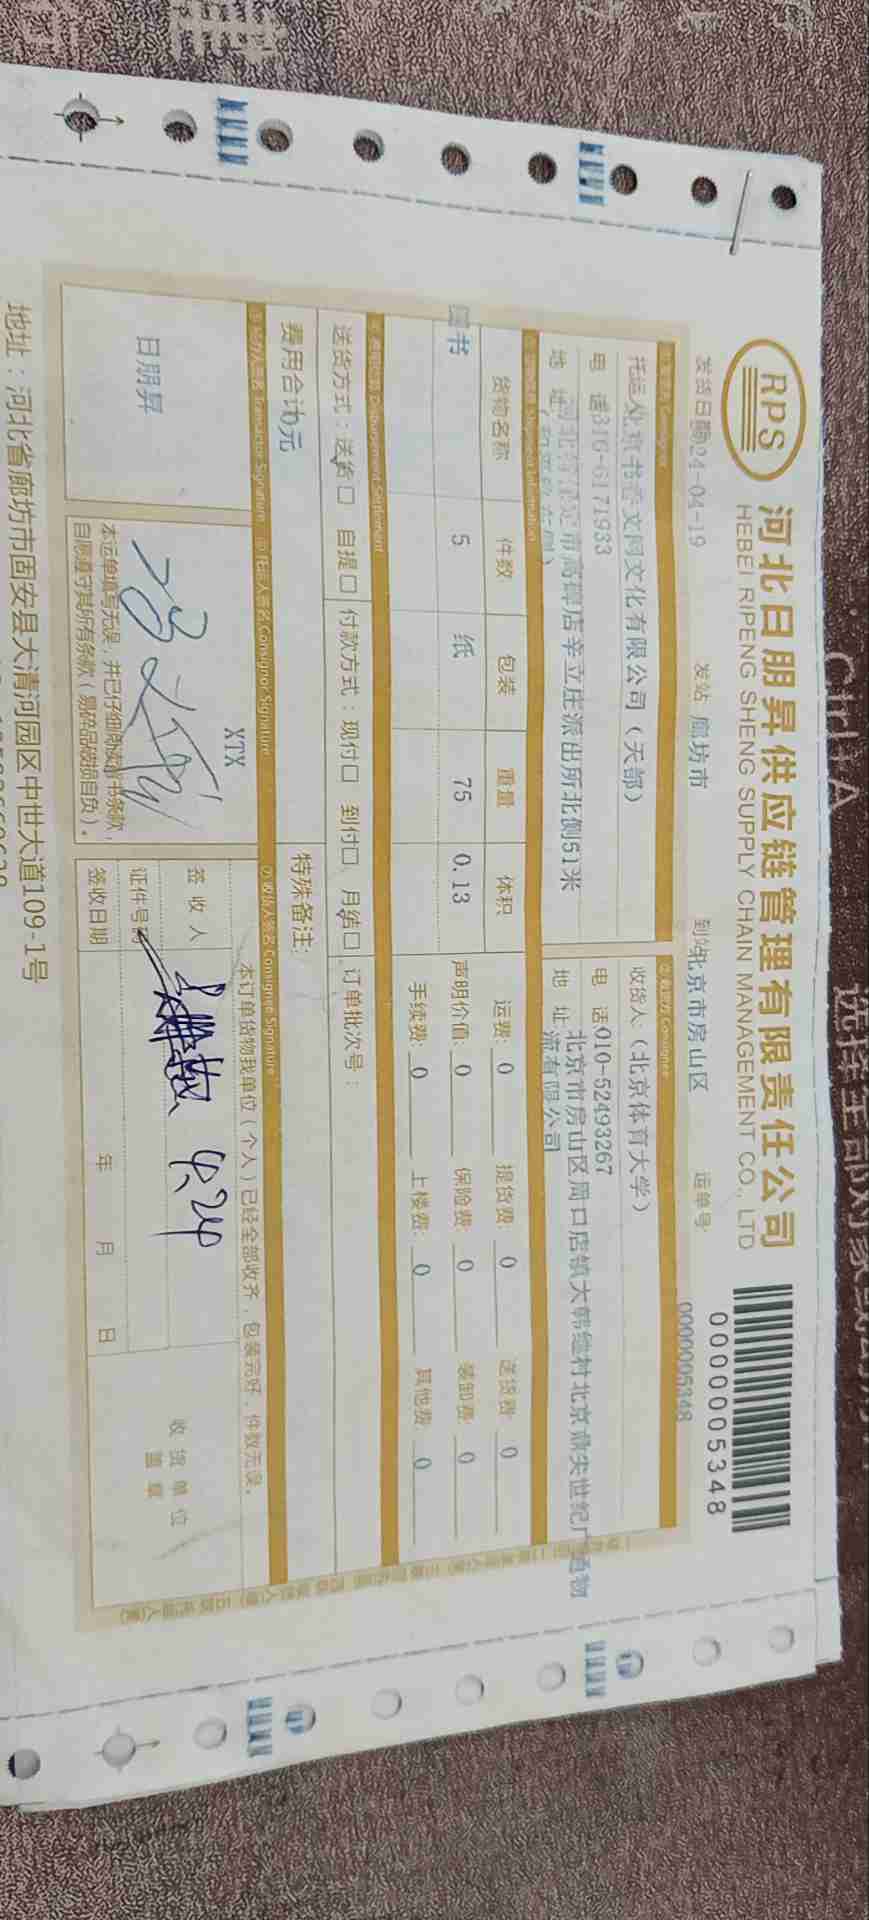 RPS
河北日朋昇供应链管理有限责任公司
HEBEI RIPENG SHENG SUPPLY CHAIN MANAGEMENT CO., LTD
0000005348
发货日期 24-04-19 发站 廊坊市 到站 北京市房山区 运单号: 0000005348
Consigner Consignee
北京书 文网文化有限公司(天部) 收货人:(北京体育大学)
电 话 316-6171933 电 话:010-52493267
地 址 市高碑店辛立庄派出所北侧51米 地 址 北京市房山区周口店镇大韩继村北京鼎尖世纪广通物
流有限公司
Shipment Information
货物名称 件数 包装 重量 体积 运费: 0 提货费: 0 送货费: 0
图书 5 纸 75 0.13 声明价值: 0 保险费: 0 装卸费: 0
手续费: 0 上楼费: 0 其他费: 0
Disbursement Settlement
送货方式:送货□ 自提□ 付款方式:现付□ 到付□ 月结□ 订单批次号:
费用合计0元 特殊备注:
Transactor Signature 托运人签名 Consignor Signature 收货人签名 Consignee Signature
本订单货物我单位(个人)已经全部收齐,包装完好,件数无误。
日朋昇 XTX 签 收 人 4.24 收货单位
证件号码 盖章
本运单填写无误,并已仔细阅读背书条款,
自愿遵守其所有条款(易碎品破损自负)。
签收日期 年 月 日
地址:河北省廊坊市固安县大清河园区中世大道109-1号
Ctrl+A
选择全部对象